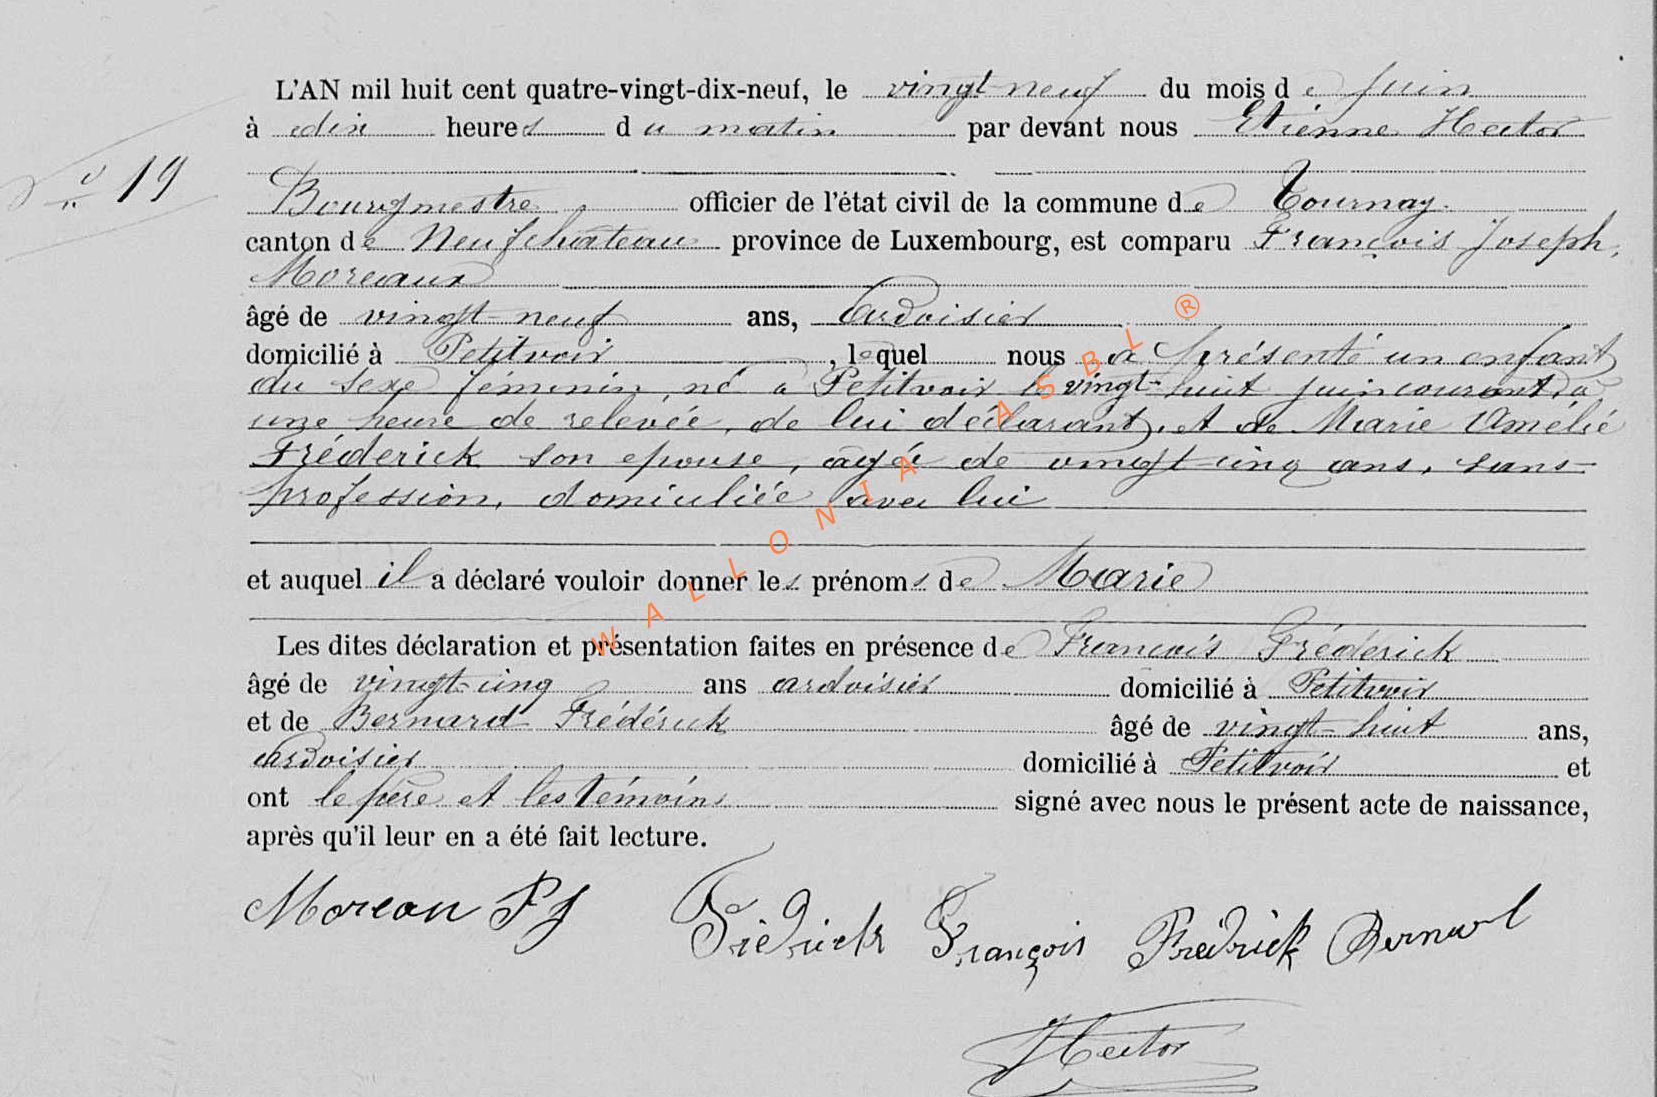 L'AN mil huit cent quatre-vingt-dix-neuf, le vingt neuf du mois de Juin
à dix heures du matin par devant nous Etienne Hector
N° 19
Bourgmestre officier de l'état civil de la commune de Tournay.
canton de Neufchâteau province de Luxembourg, est comparu François Joseph,
Moreaux
âgé de vingt-neuf ans, ardoisier
domicilié à Petitvoir, lequel nous a présenté un enfant
du sexe féminin, né à Petitvoir le vingt-huit juin courant, à
une heure de relevée, de lui déclarant, et de Marie Amélie
Fréderick son epouse, agée de vingt-cinq ans, sans
profession, domiciliée avec lui
et auquel il a déclaré vouloir donner les prénoms de Marie
Les dites déclaration et présentation faites en présence de François Fréderick
âgé de vingt-cinq ans ardoisier domicilié à Petitvoir
et de Bernard Frédérick âgé de vingt-huit ans,
ardoisier domicilié à Petitvoir et
ont le père et les témoins signé avec nous le présent acte de naissance,
après qu'il leur en a été fait lecture.
Moreau FJ Fredrick François Fredrick Bernard
Hector
WALLONIA ASBL ®